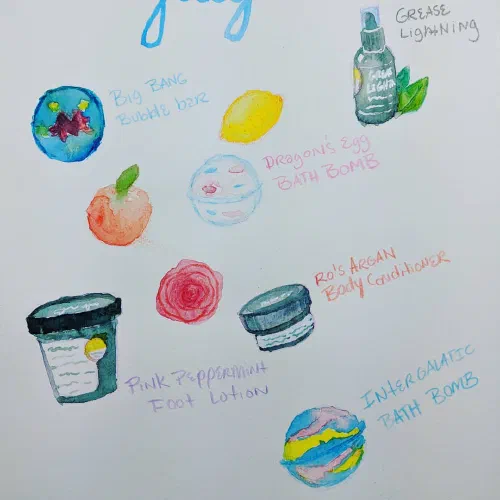 July
GREASE
LigHtNiNg
GREASE
LIGHT
Big BANG
Bubble bar
DRagon's Egg
BATH BOMB
Ro's ARGAN
Body Conditioner
Pink Peppermint
Foot Lotion
INTERGALATIC
BATH BOMB